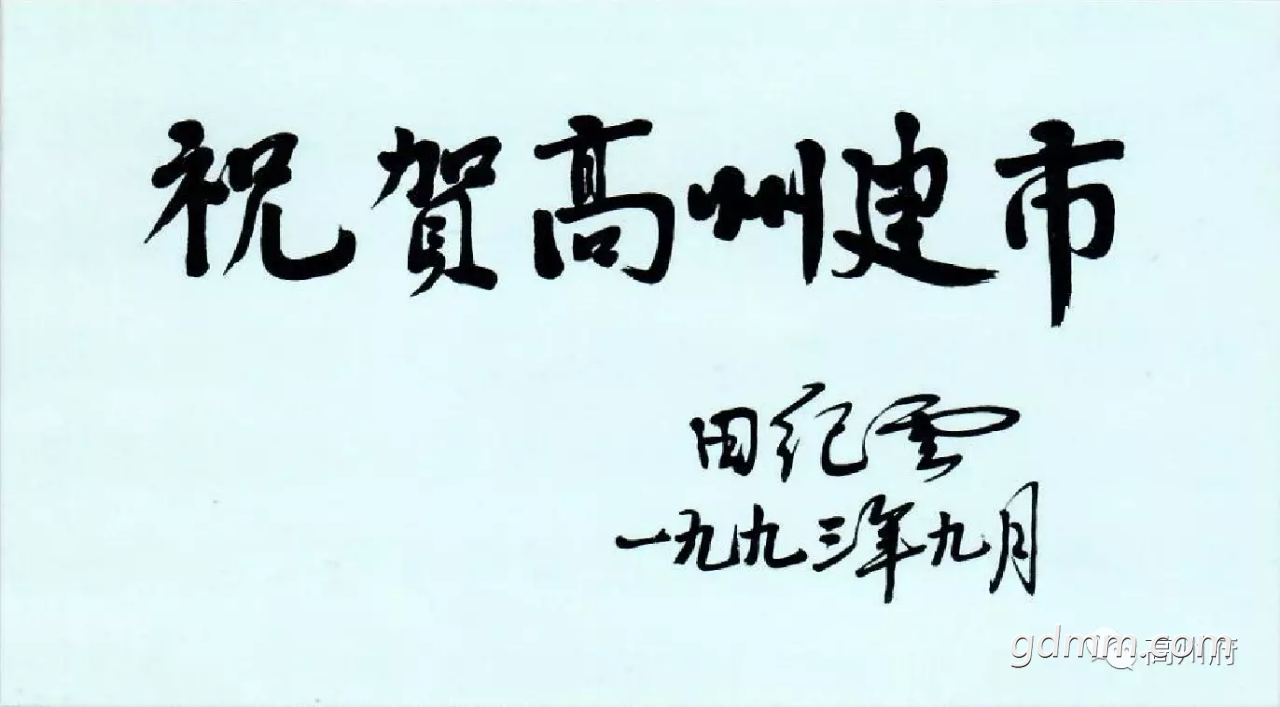 祝賀高州建市
田纪雲
一九九三年九月
gdmm.com
高州府